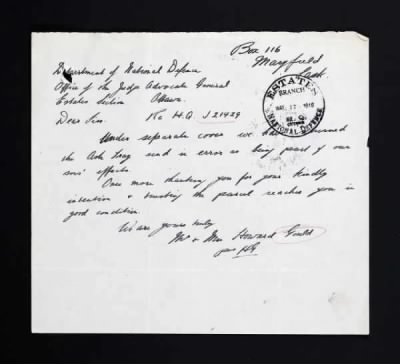 Box 116
Mayfield
Sask.
Department of National Defence
Office of the Judge Advocate General
Estates Section Ottawa.
ESTATES
BRANCH
NATIONAL DEFENCE
Dear Sirs. Re H.Q. J 21929
Under separate cover we have returned
the Ash Tray sent in error as being part of our
sons' effects.
Once more thanking you for your kindly
intention & trusting the parcel reaches you in
good condition.
We are yours truly
Mr & Mrs Howard Gould
per